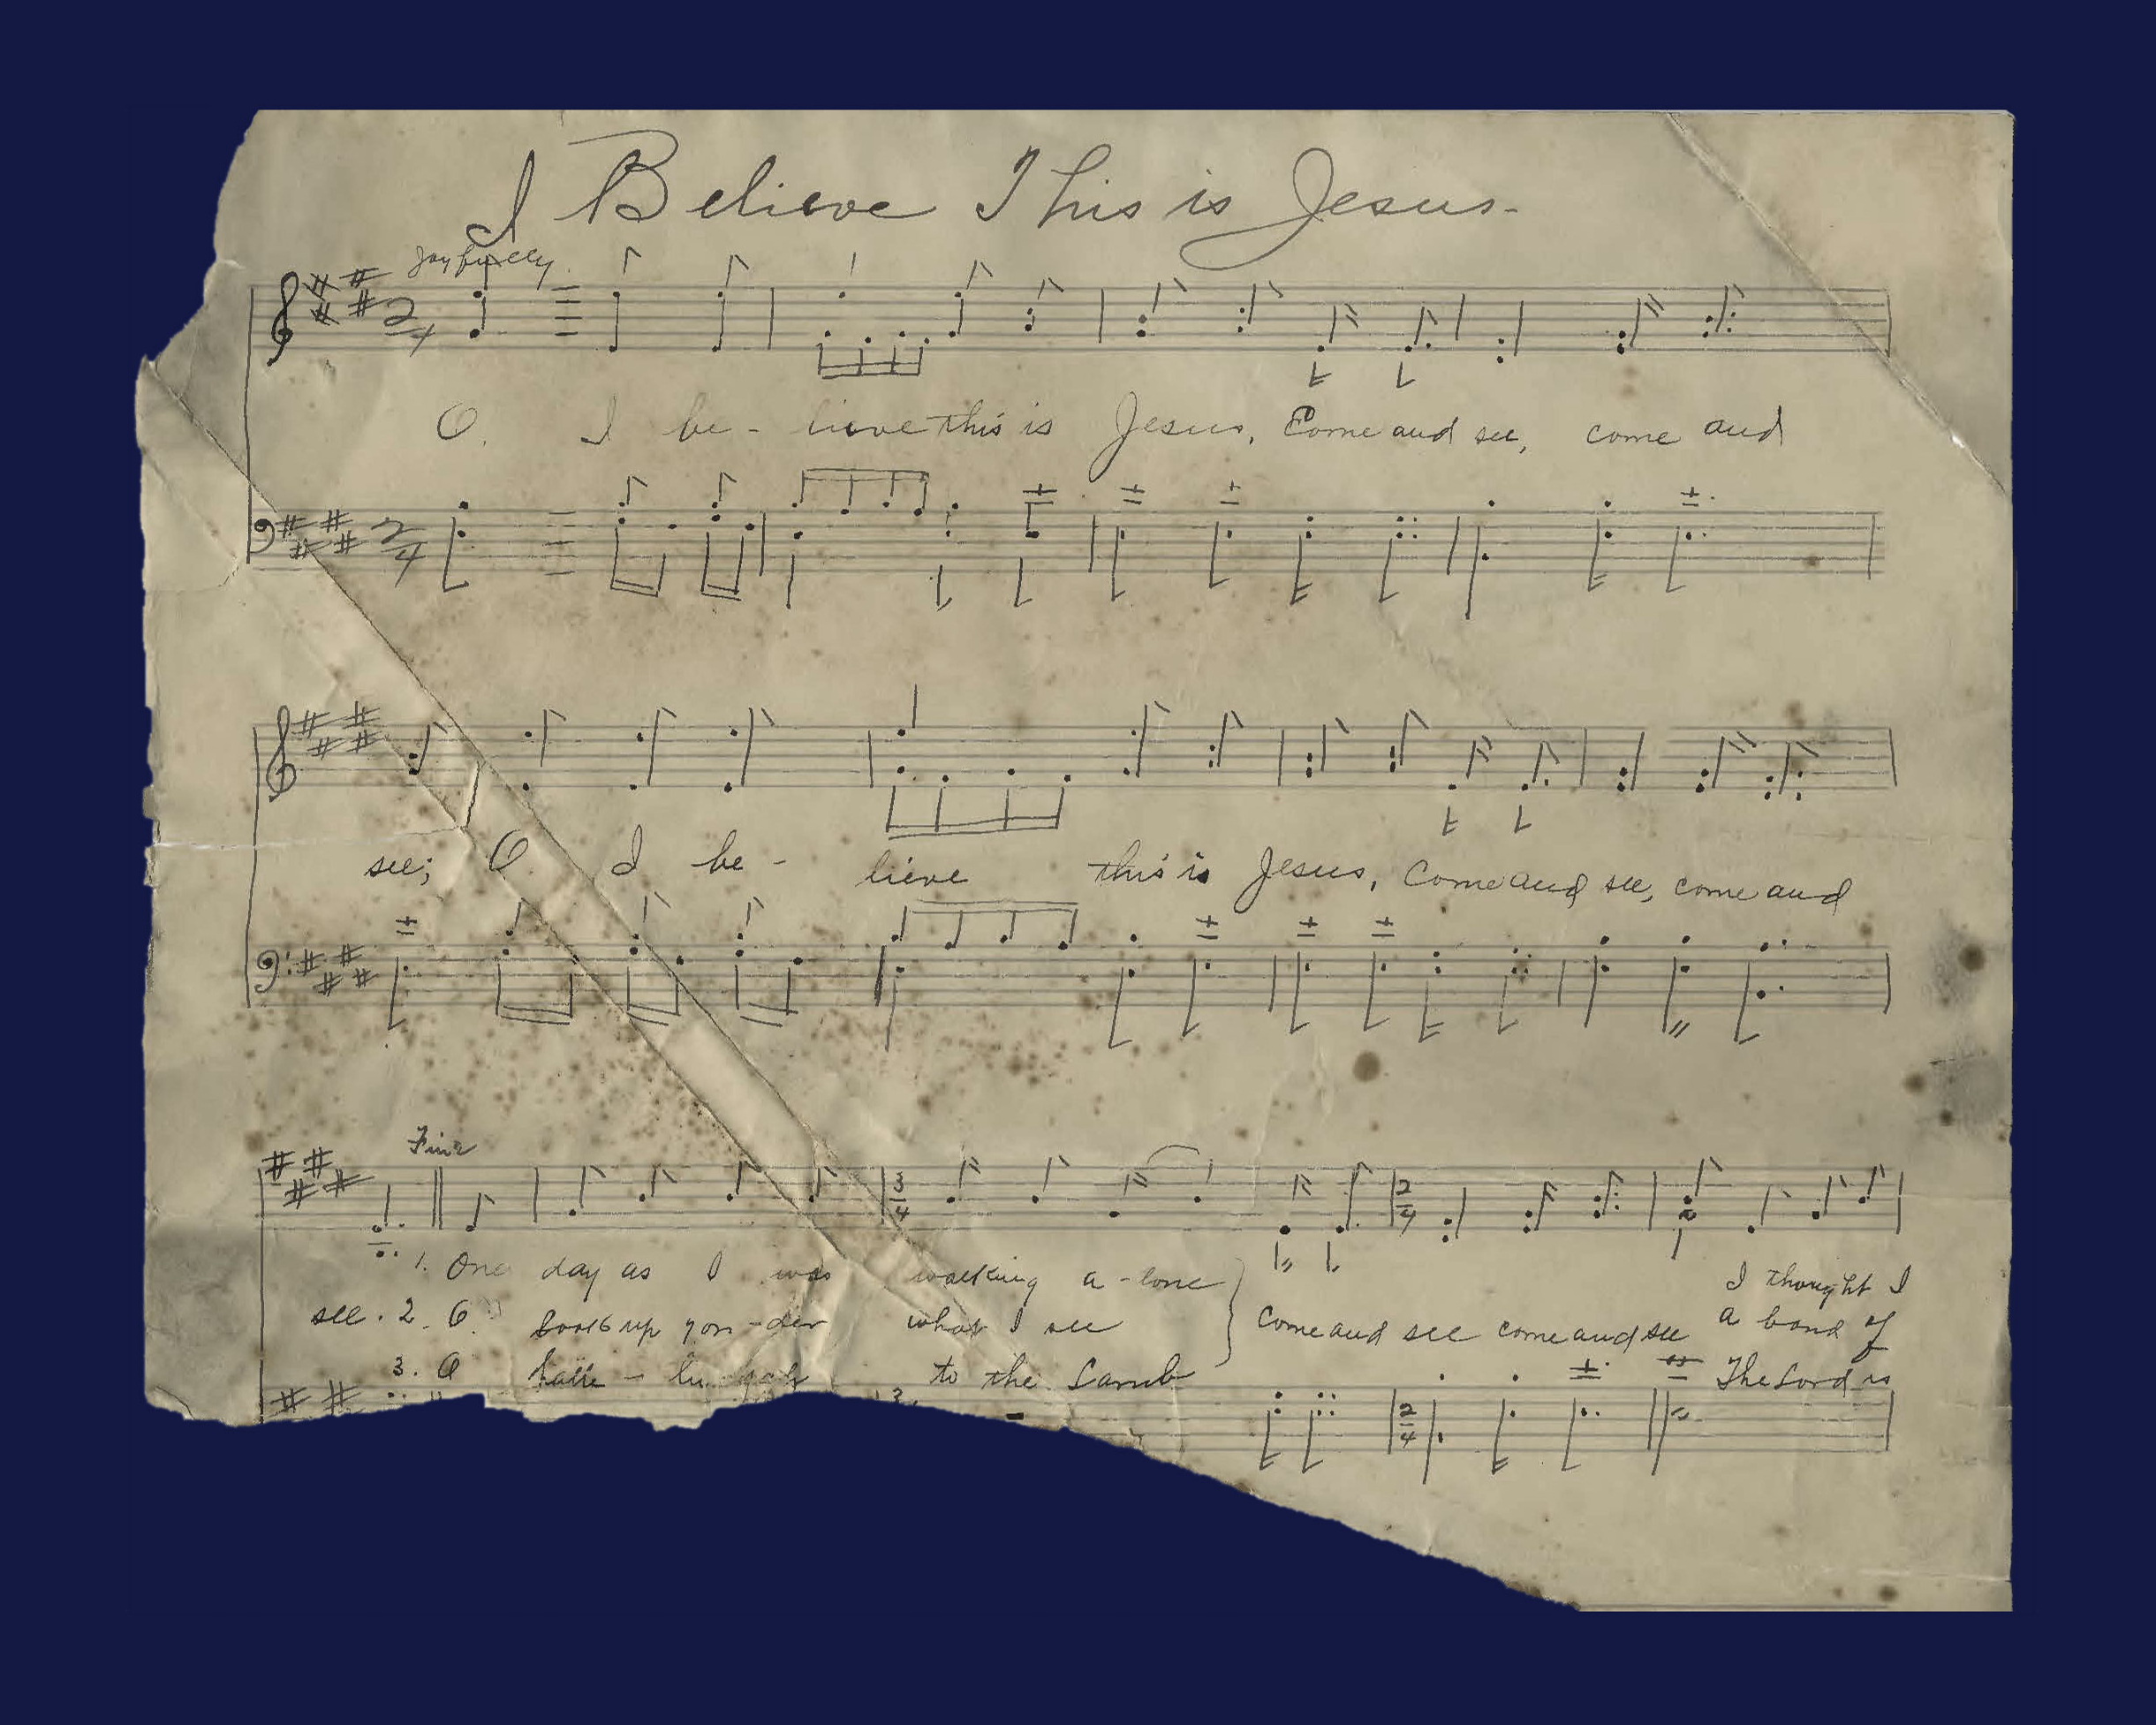 I Believe This is Jesus.
Joyfully.
2/4
O. I be - lieve this is Jesus, Come and see, come and
2/4
see; O I be - lieve this is Jesus, Come and see, come and
Fine
3/4 2/4
1. One day as I was walking a - lone I thought I
see. 2. O look up yon - der what I see Come and see come and see a band of
3. O halle - lu - jah to the Lamb The Lord is
3 2/4